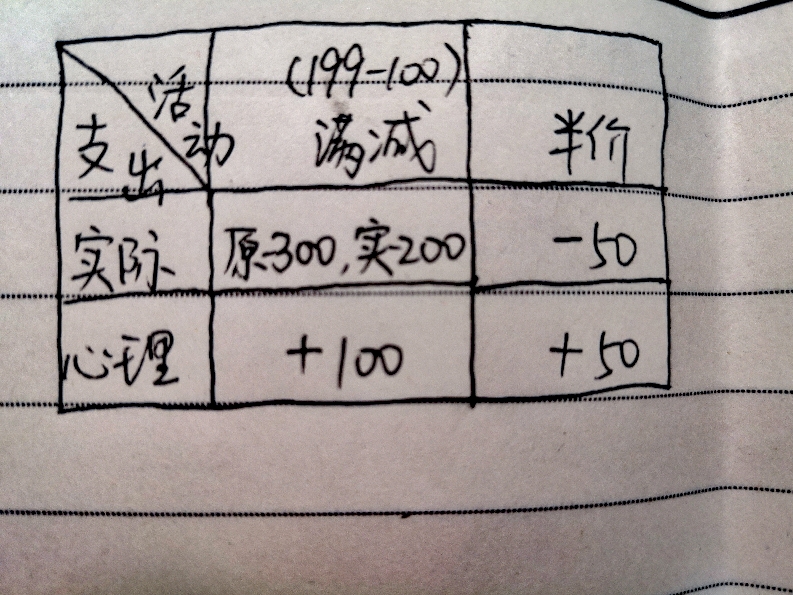 活动
支出
(199-100)
满减
半价
实际
原-300,实-200
-50
心理
+100
+50